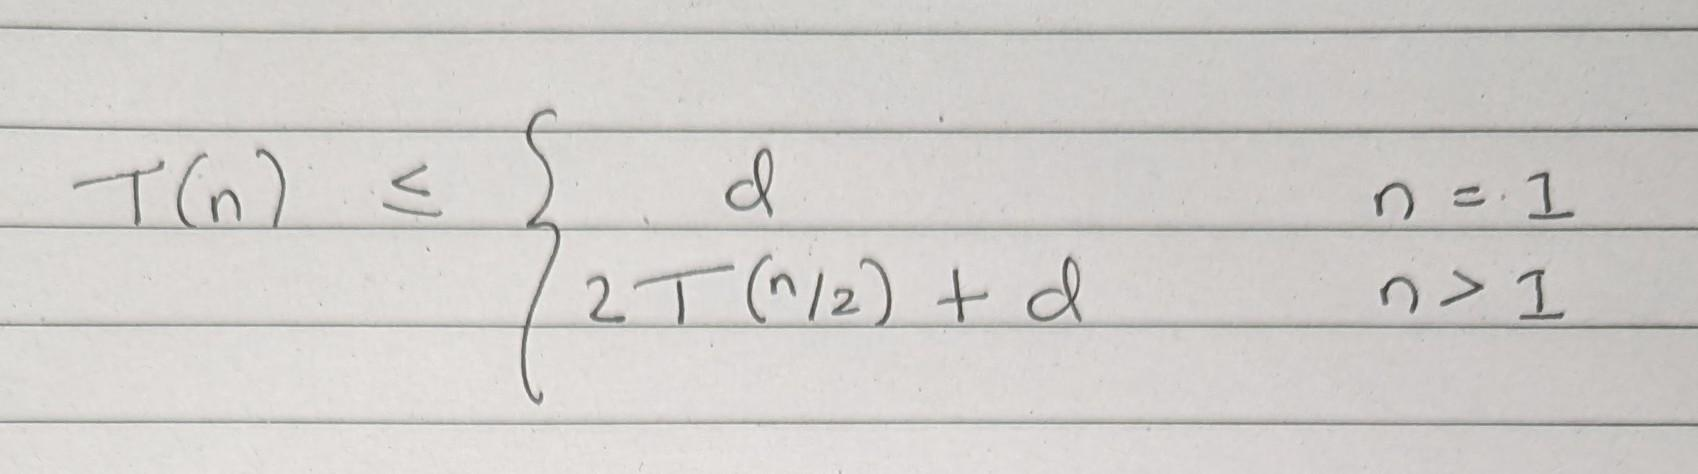 T(n) ≤ { d n = 1
2T(n/2) + d n > 1